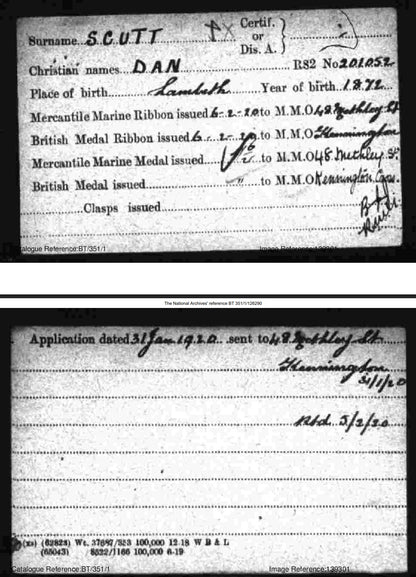 Surname...SCUTT
Certif. or Dis. A.
Christian names...DAN
R S2 No 201052
Place of birth...Lambeth Year of birth 1872
Mercantile Marine Ribbon issued 6-2-20 to M.M.O 48 Methley St
British Medal Ribbon issued 6-2-20 to M.M.O Kennington
Mercantile Marine Medal issued... to M.M.O 48 Methley St.
British Medal issued... " to M.M.O Kennington Cross.
Clasps issued
Catalogue Reference:BT/351/1 Image Reference:139301
The National Archives' reference BT 351/1/126290
Application dated 31 Jan 1920 sent to 48 Methley St
Kennington
31/1/20
5/2/20
(62823) Wt. 37697/323 100,000 12-18 W B & L
(65043) 8522/1166 100,000 6-19
Catalogue Reference:BT/351/1 Image Reference:139301